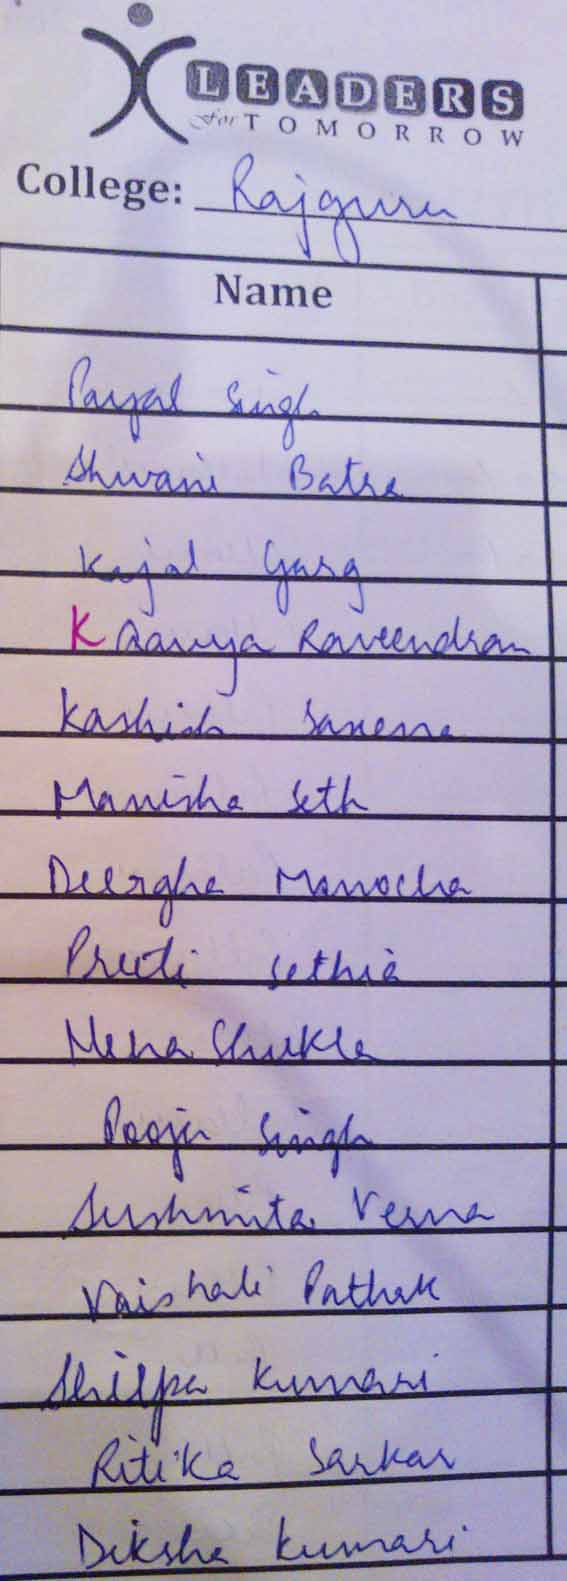 LEADERS
for TOMORROW
College: Rajguru
Name
Payal Singh
Shivani Batra
Kajal Garg
K Raavya Raveendran
Kashish Saxena
Manisha Seth
Deergha Manocha
Preeti Sethia
Neha Shukla
Pooja Singh
Sushmita Verma
Vaishali Pathak
Shilpa Kumari
Ritika Sarkar
Diksha Kumari